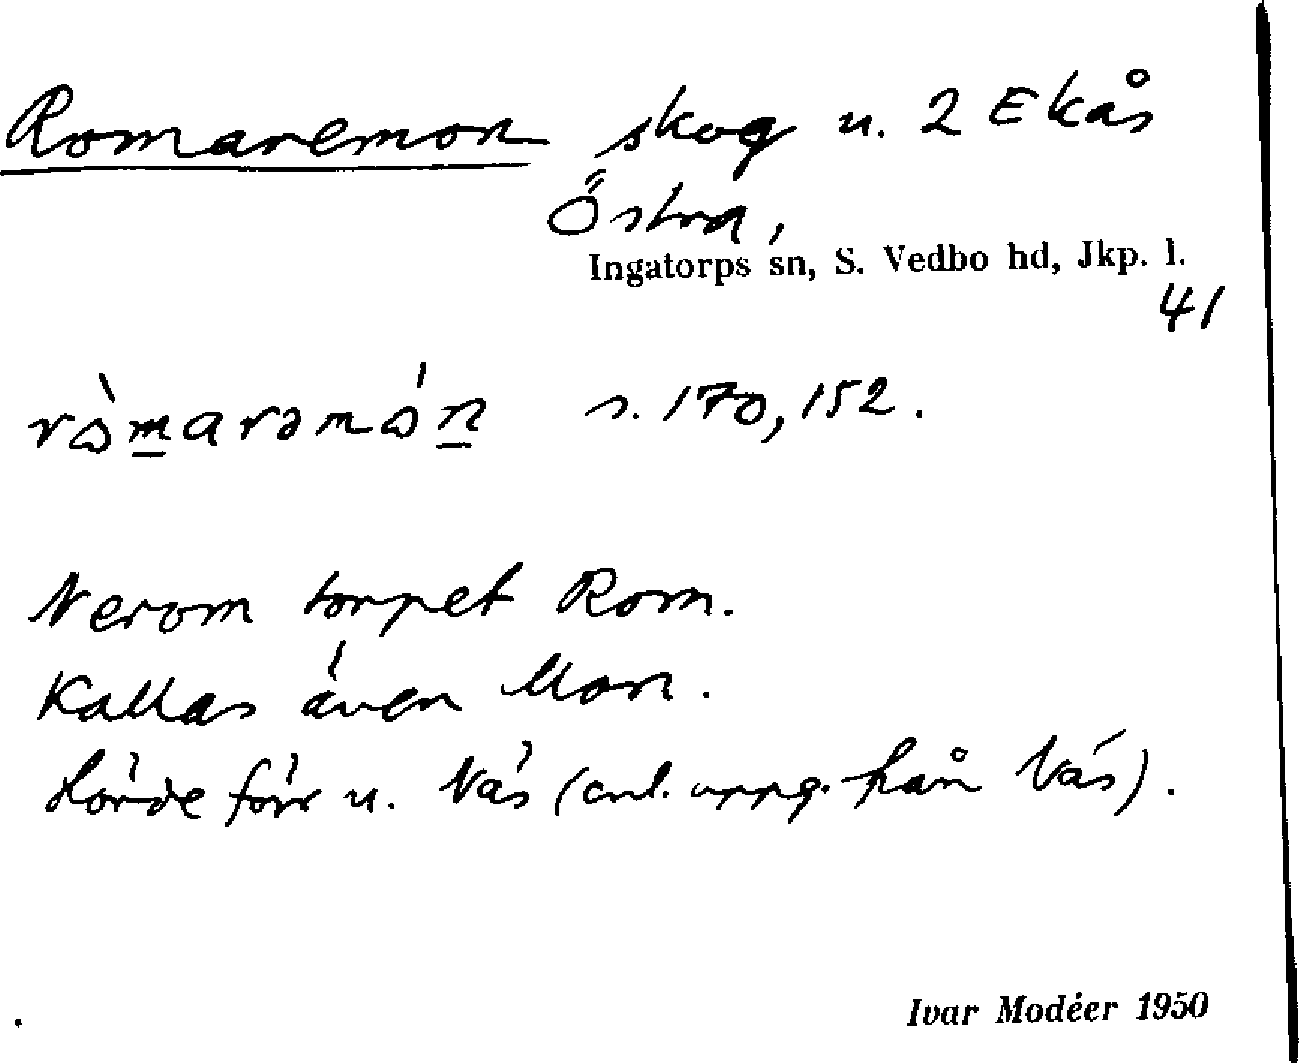 Romaremon skog u. 2 Ekås
Östra,
Ingatorps sn, S. Vedbo hd, Jkp. l.
41
s. 170, 152.
Nerom torpet Rom.
Kallas även Mon.
Hörde förr u. Näs (enl. uppg. från Näs).
Ivar Modéer 1950